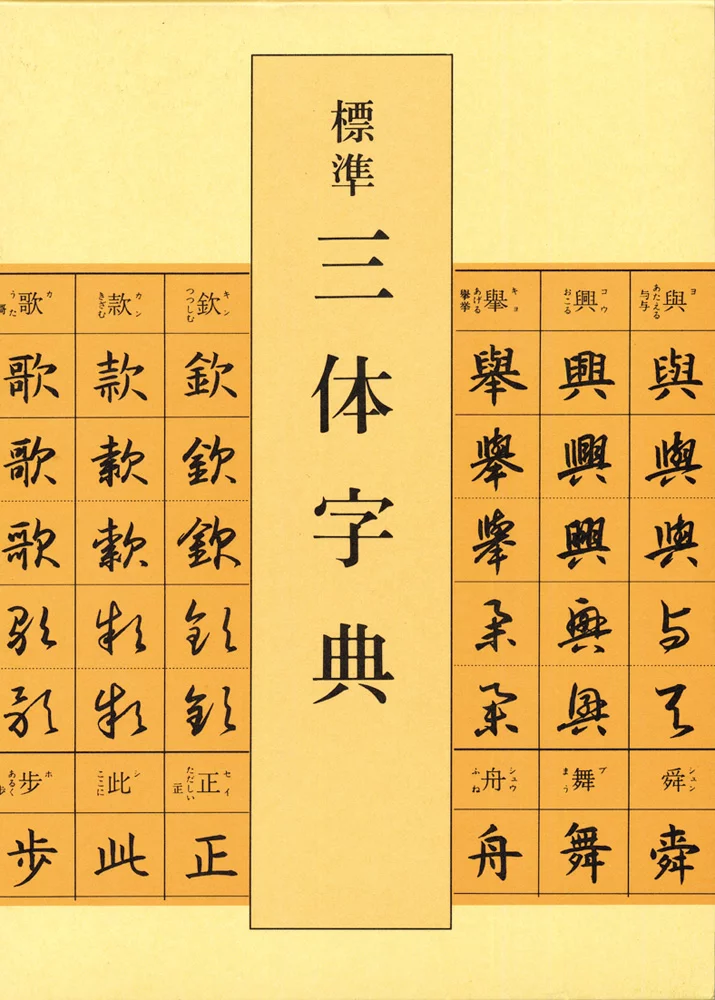 標準 三体字典
與 ヨ あたえる 与与
與
與
與
与
與
舜 シュン
舜
興 コウ おこる
興
興
興
興
興
舞 ブ まう
舞
舉 キョ あげる 擧挙
舉
舉
舉
舉
舉
舟 シュウ ふね
舟
欽 キン つつしむ
欽
欽
欽
欽
欽
正 セイ ただしい 正
正
款 カン きざむ
款
款
款
款
款
此 シ ここに
此
歌 カ うた
歌
歌
歌
歌
歌
步 ホ あるく
歩